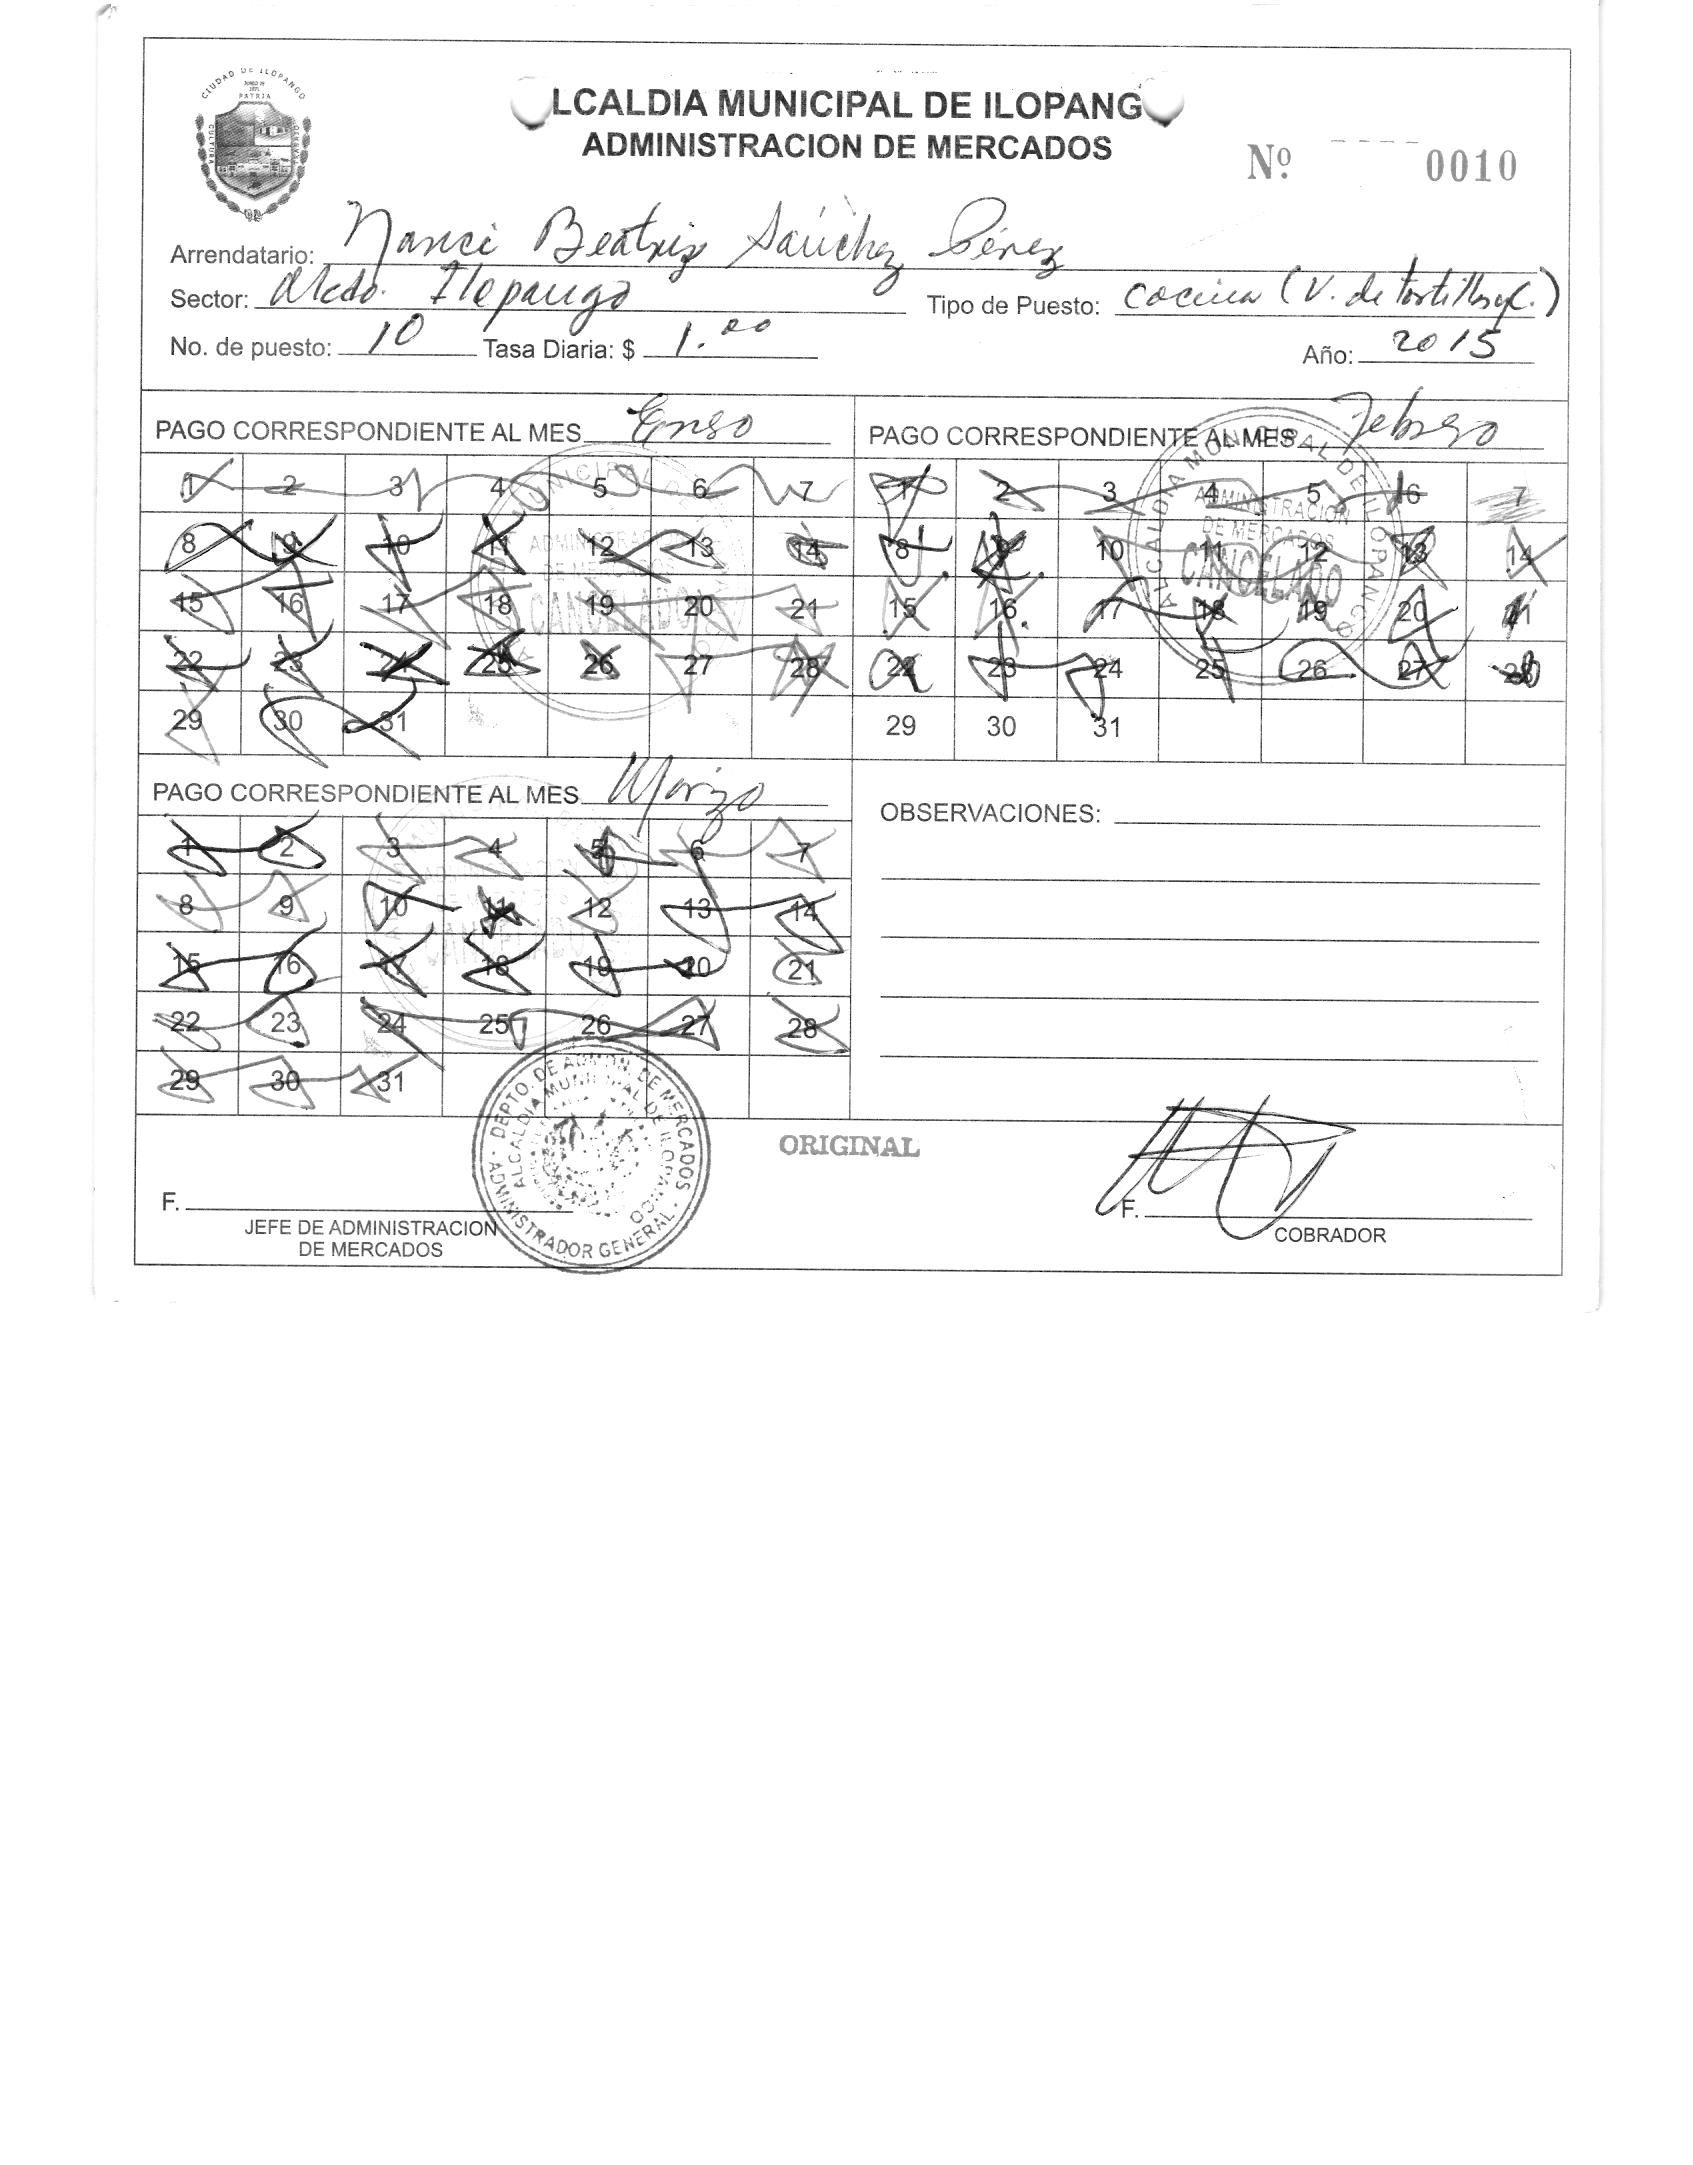 CIUDAD DE ILOPANGO
PATRIA
CULTURA
LCALDIA MUNICIPAL DE ILOPANG
ADMINISTRACION DE MERCADOS
Nº 0010
Arrendatario: Nanci Beatriz Sánchez Pérez
Sector: Mcdo. Ilopango Tipo de Puesto: Cocina (V. de tortillas
No. de puesto: 10 Tasa Diaria: $ 1.00 Año: 2015
PAGO CORRESPONDIENTE AL MES Enero
1 2 3 4 5 6 7
8 9 10 11 12 13 14
15 16 17 18 19 20 21
22 23 24 25 26 27 28
29 30 31
MUNICIPAL DE
ADMINISTRACION
DE MERCADOS
CANCELADO
PAGO CORRESPONDIENTE AL MES Febrero
1 2 3 4 5 6 7
8 9 10 11 12 13 14
15 16 17 18 19 20 21
22 23 24 25 26 27 28
29 30 31
ALCALDIA MUNICIPAL DE ILOPANGO
ADMINISTRACION
DE MERCADOS
CANCELADO
PAGO CORRESPONDIENTE AL MES Marzo
1 2 3 4 5 6 7
8 9 10 11 12 13 14
15 16 17 18 19 20 21
22 23 24 25 26 27 28
29 30 31
OBSERVACIONES:
DEPTO. DE ADMON. DE MERCADOS
ALCALDIA MUNICIPAL DE ILOPANGO
ADMINISTRADOR GENERAL
ORIGINAL
F.
JEFE DE ADMINISTRACION
DE MERCADOS
F.
COBRADOR